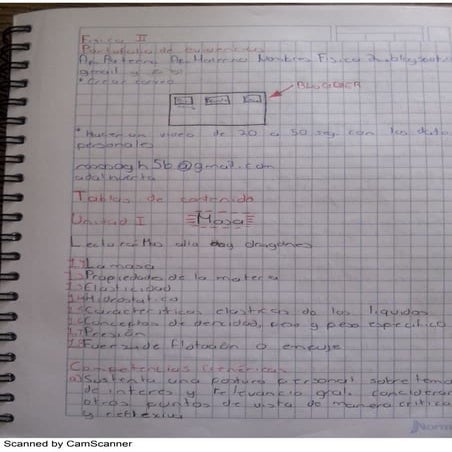 Física II
Portafolio de evidencias
Ap. Paterno Ap. Materno Nombres Física 2. blogspot.
gmail
* Crear correo
BLOGGER
* Hacer un video de 20 a 50 seg. con los datos
personales
5b@gmail.com
Tablas de contenido
Unidad I Masa
Lectura: No alla hay dragones
La masa
Propiedades de la materia
Elasticidad
Hidrostatica
Características elasticas de los liquidos
Conceptos de densidad, peso y peso especifico
Presión
Fuerza de flotación o empuje
Competencias Genéricas
a) Sustenta una postura personal sobre temas
de interes y relevancia gral. considerar
otros puntos de vista de manera critica
y reflexiva
Norma
Scanned by CamScanner